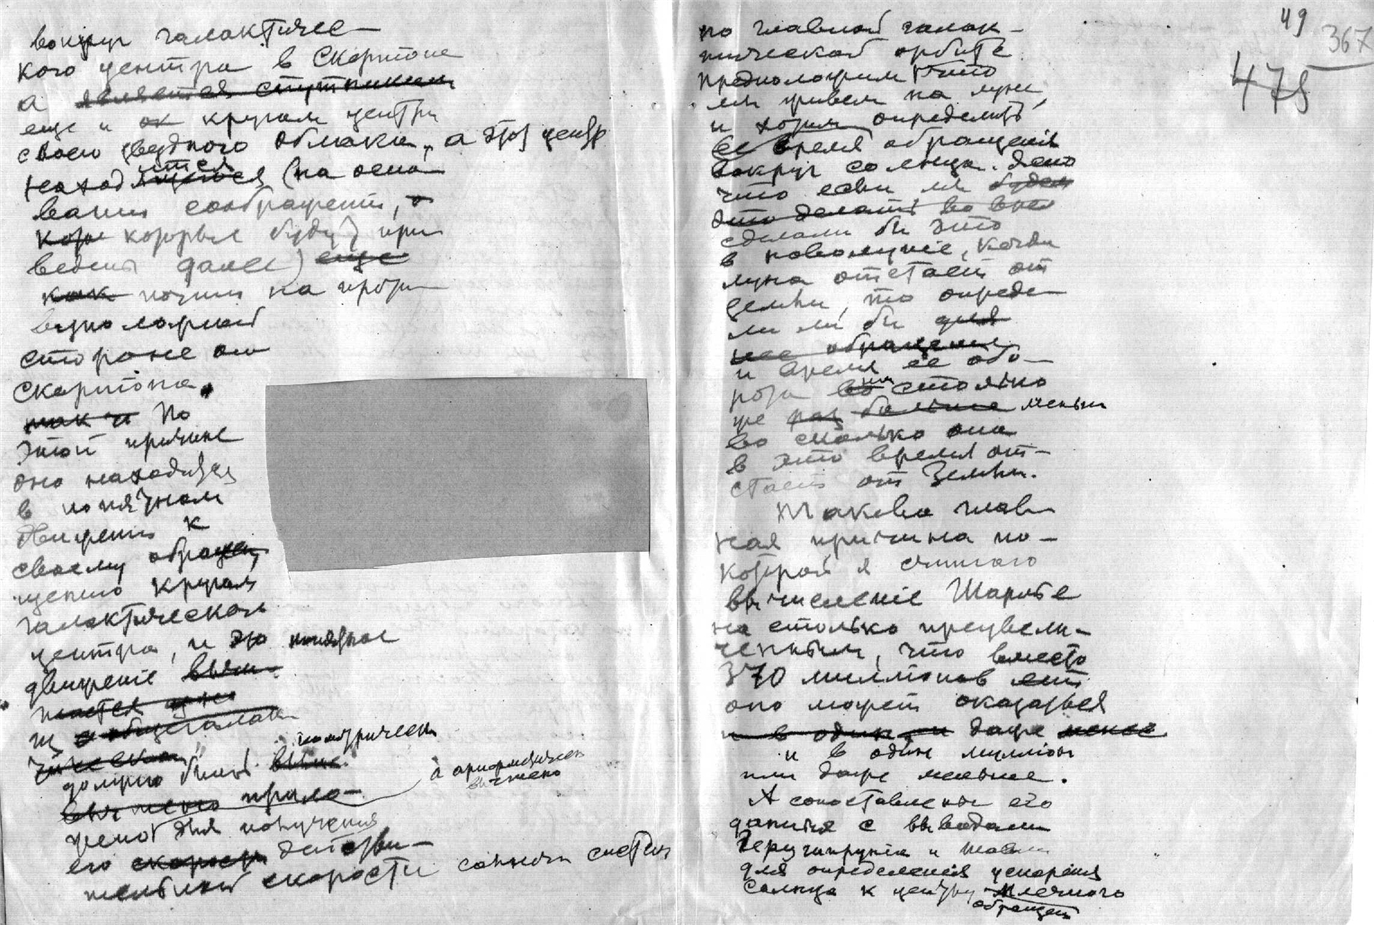 вокруг галактичес-
кого центра в Скорпионе
а является спутником
еще и ок кругом центра
своего звездного облака, а этот центр
находится (на осно
вании соображений,
кото которые будут при
ведены далее) еще
как почти на проти
вуположной
стороне от
Скорпиона.
так и По
этой причине
оно находится
в попятном
движении к
своему обращен
щению кругом
галактического
центра, и это попятное
движение вычи-
тается
общегалак
тическаго
должно быть
геометрически
вычтено прило-
а арифметически
вычтено
жено для получения
его скорости действи-
тельной скорости солнечн системы
49
367
475
по главной галак-
тической орбите.
Предположим что
мы живем на луне,
и хотим определить
ее время обращения
вокруг солнца. Ясно
что если мы будем
это делать во врем
сделали бы это
в новолуние, когда
луна отстает от
Земли, то опреде
ли ли бы для
нее обращения
и время ее обо-
рота во столько
же раз больше меньш
во сколько она
в это время от-
стает от Земли.
Такова глав
ная причина по-
которой я считаю
вычисление Шарлье
на столько преувели-
ченным, что вместо
370 миллионов лет
оно может оказаться
и в один и даже менее
и в один миллион
или даже меньше.
А сопоставление его
данных с выводами
для определения ускорения
Солнца к центру Млечного
обращен